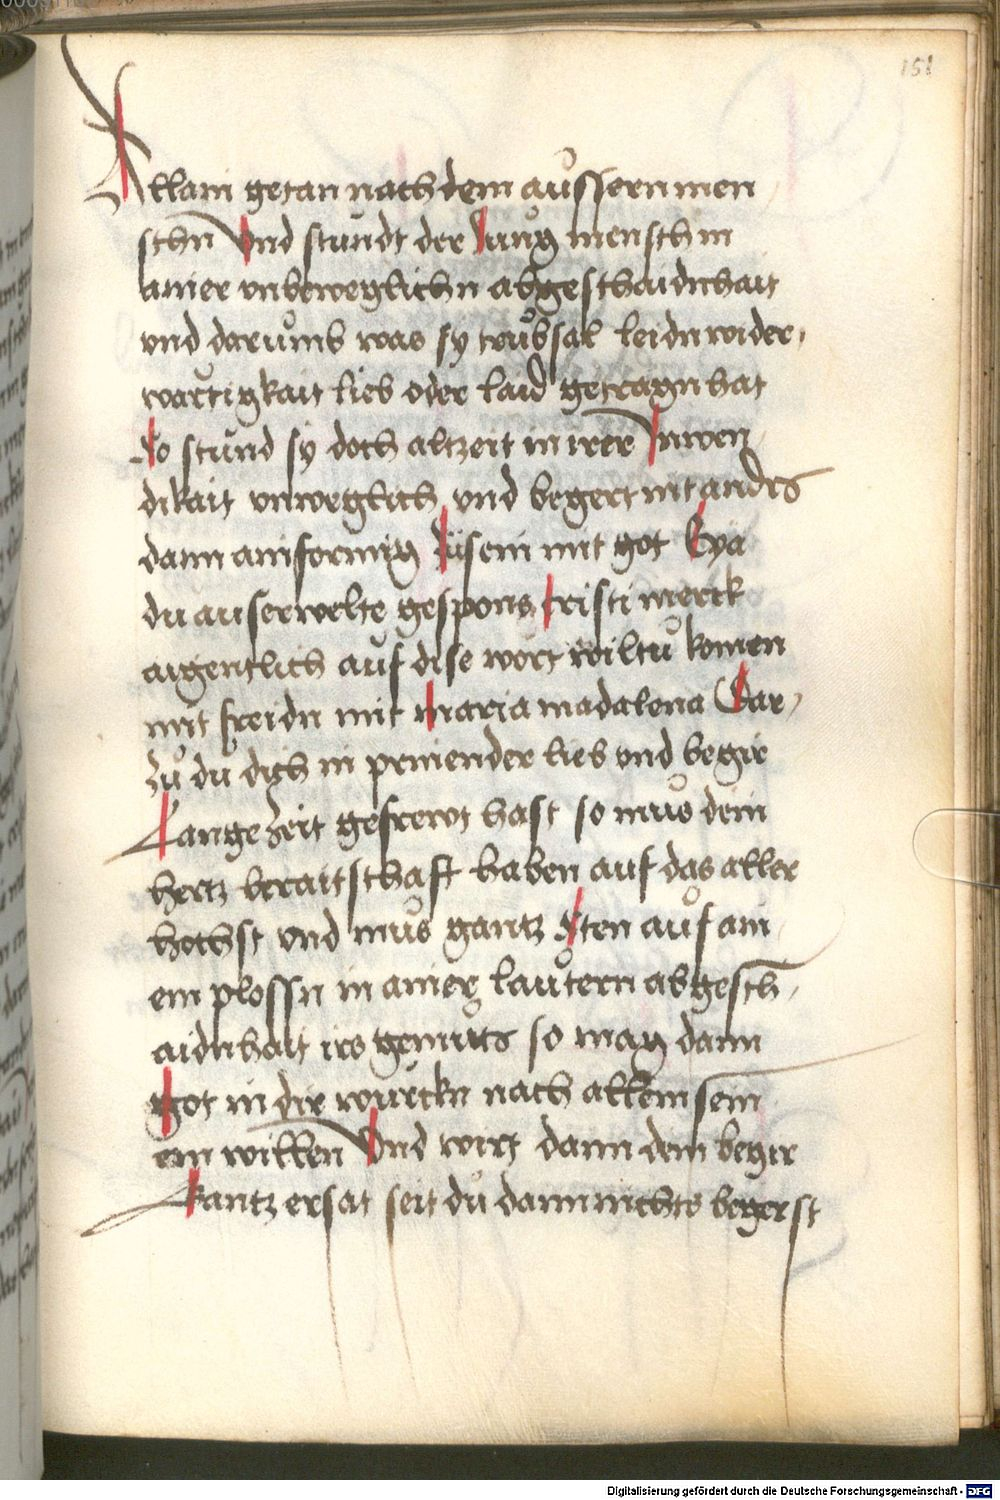 151
Allain getan nach dem aůssern men
schn Vnd stůndt der Jung mensch in
ainer vnbeweglichn abgeschaidnhait
vnd darůmb was sy trůbsal leidn wider
wartigkait lieb oder laid getragn hat
So stůnd sy doch altzeit in irer Inwen
dikait vnweglich vnd begert nit andrs
dann ainformig zů sein mit got Eya
du auserwelte gespons cristi merck
aigentlich aůf dise wort wiltů komen
mit freidn mit maria madalena Dar
zů du dich in priniender lieb vnd begir
Lange zeit gefrewt hast so můs dein
hertz beraitschaft haben auf das aller
hochst vnd můs gantz Sten aůf ain
em plossn in ainer laůtern abgesch
aidnhait irs gemüts so mag dann
got in dir würckn nach allem sein
em willen Vnd wirt dann dein begir
Gantz ersat seit dů dann nichts begerst
Digitalisierung gefördert durch die Deutsche Forschungsgemeinschaft - DFG